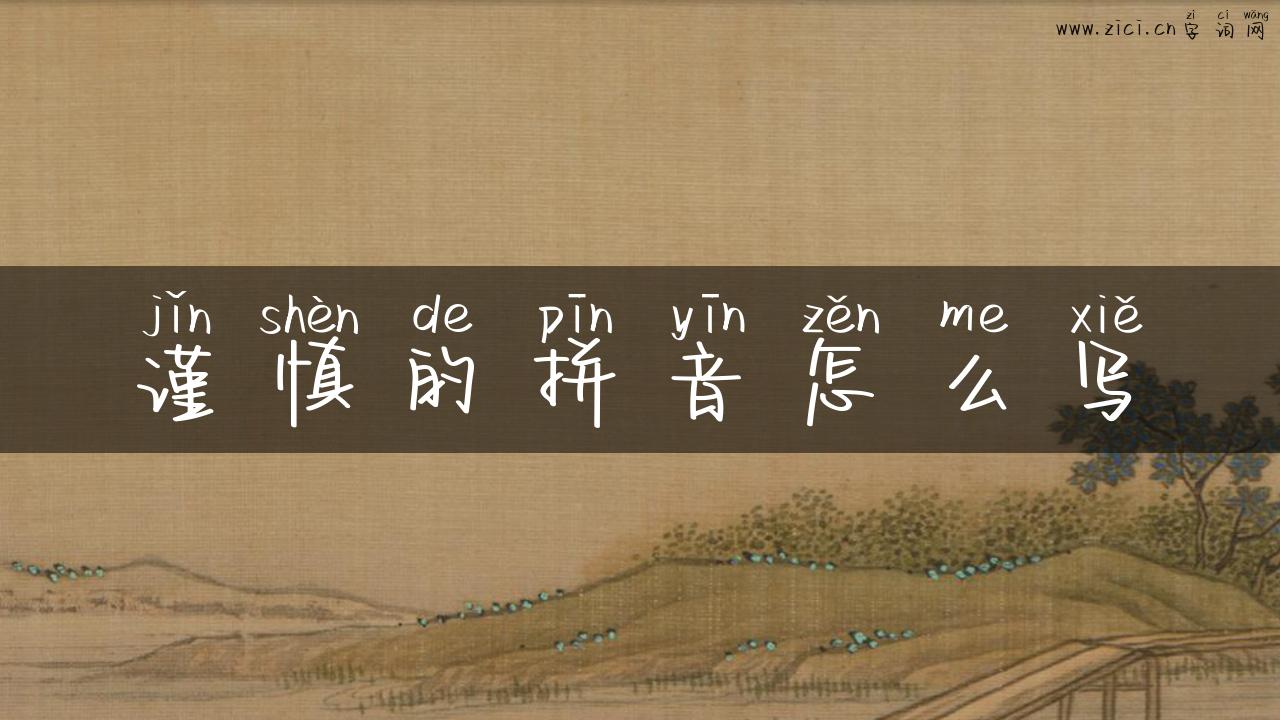 zì cí wǎng
www.zici.cn 字 词 网
jǐn shèn de pīn yīn zěn me xiě
谨 慎 的 拼 音 怎 么 写